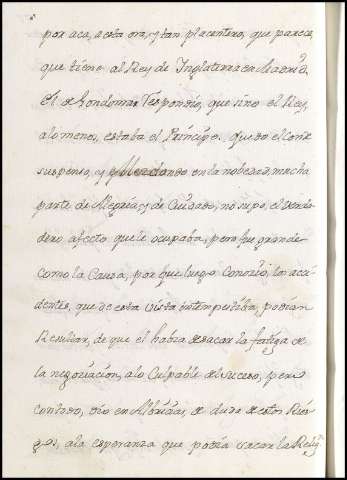 por aca, a esta ora, y tan placentero, que parece,
que tiene al Rey de Inglaterra en Madrid.
El de Gondomar Respondio, que sino el Rey,
alomenos, estaba el Principe. quedo el Conde
suspenso, y mezclando en la nobedad, mucha
parte de Alegria, y de Cuidado, no supo, el berda
dero afecto que le ocupaba, pero fue grande
como la Causa, por que luego Conocio, los acci
dentes, que de esta vista intempestiba, podian
Resultar, de que el habia de sacar la fatiga de
la negociacion, alo Culpable del suceso, pero
con todo, dio en Albricias, de duda de estos Ries
gos, ala esperanza que podia sacar la Relig.n